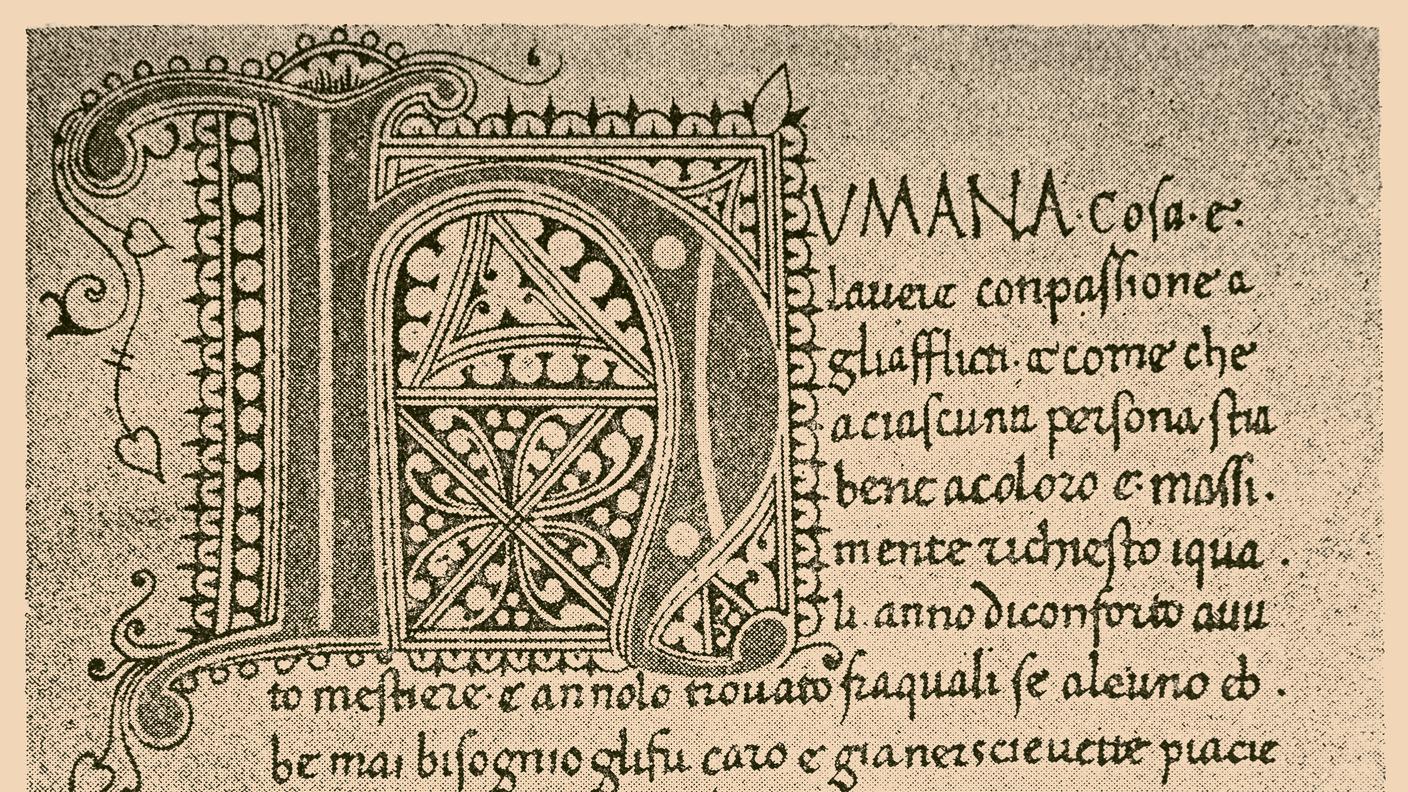 HUMANA. Cosa. e.
lauere conpassione a
gliafflicti. & come che
aciascuna persona stia
bene acoloro e massi.
mente richiesto iqua.
li. anno diconforto auu
to mestiere. & annolo trouato fraquali se alcuno eb.
be mai bisognio glifu caro e gianericieuette piacie